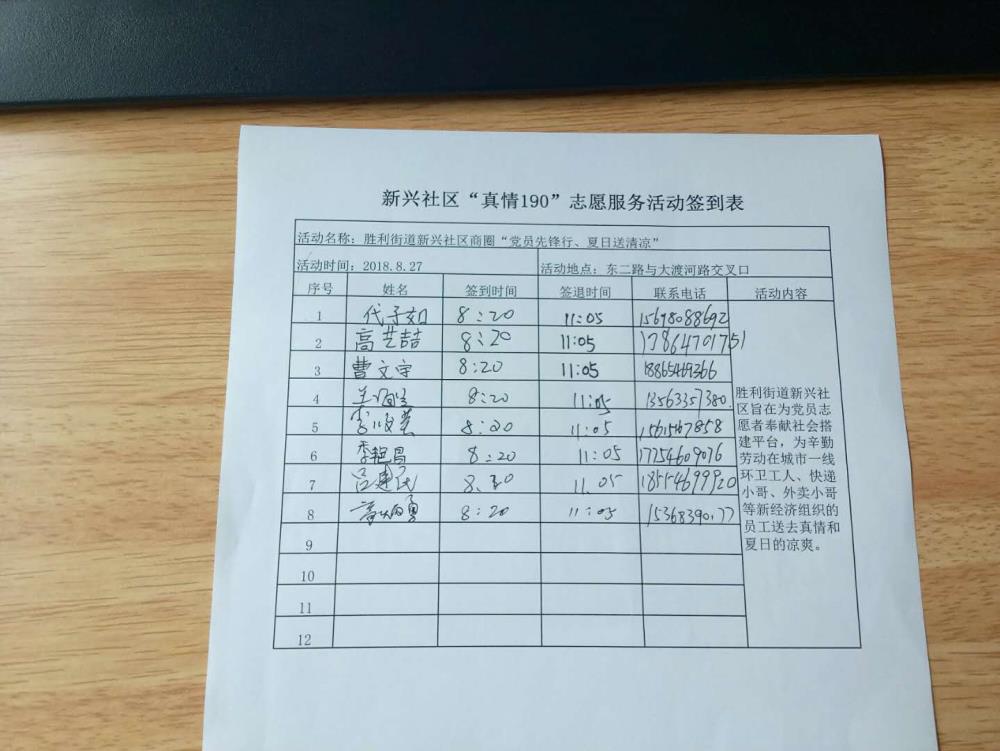 新兴社区“真情190”志愿服务活动签到表
活动名称：胜利街道新兴社区商圈“党员先锋行、夏日送清凉”
活动时间：2018.8.27 活动地点：东二路与大渡河路交叉口
序号 姓名 签到时间 签退时间 联系电话 活动内容
1 代子如 8:20 11:05 15698088692
2 高芝喆 8:20 11:05 17864701751
3 曹文宇 8:20 11:05 18865469366
4 8:20 11:05 13563357380
5 8:20 11:05 15615467858
6 季艳昌 8:20 11:05 17754609076
7 吕建民 8:20 11:05 18554699920
8 8:20 11:05
9
10
11
12
胜利街道新兴社
区旨在为党员志
愿者奉献社会搭
建平台，为辛勤
劳动在城市一线
环卫工人、快递
小哥、外卖小哥
等新经济组织的
员工送去真情和
夏日的凉爽。